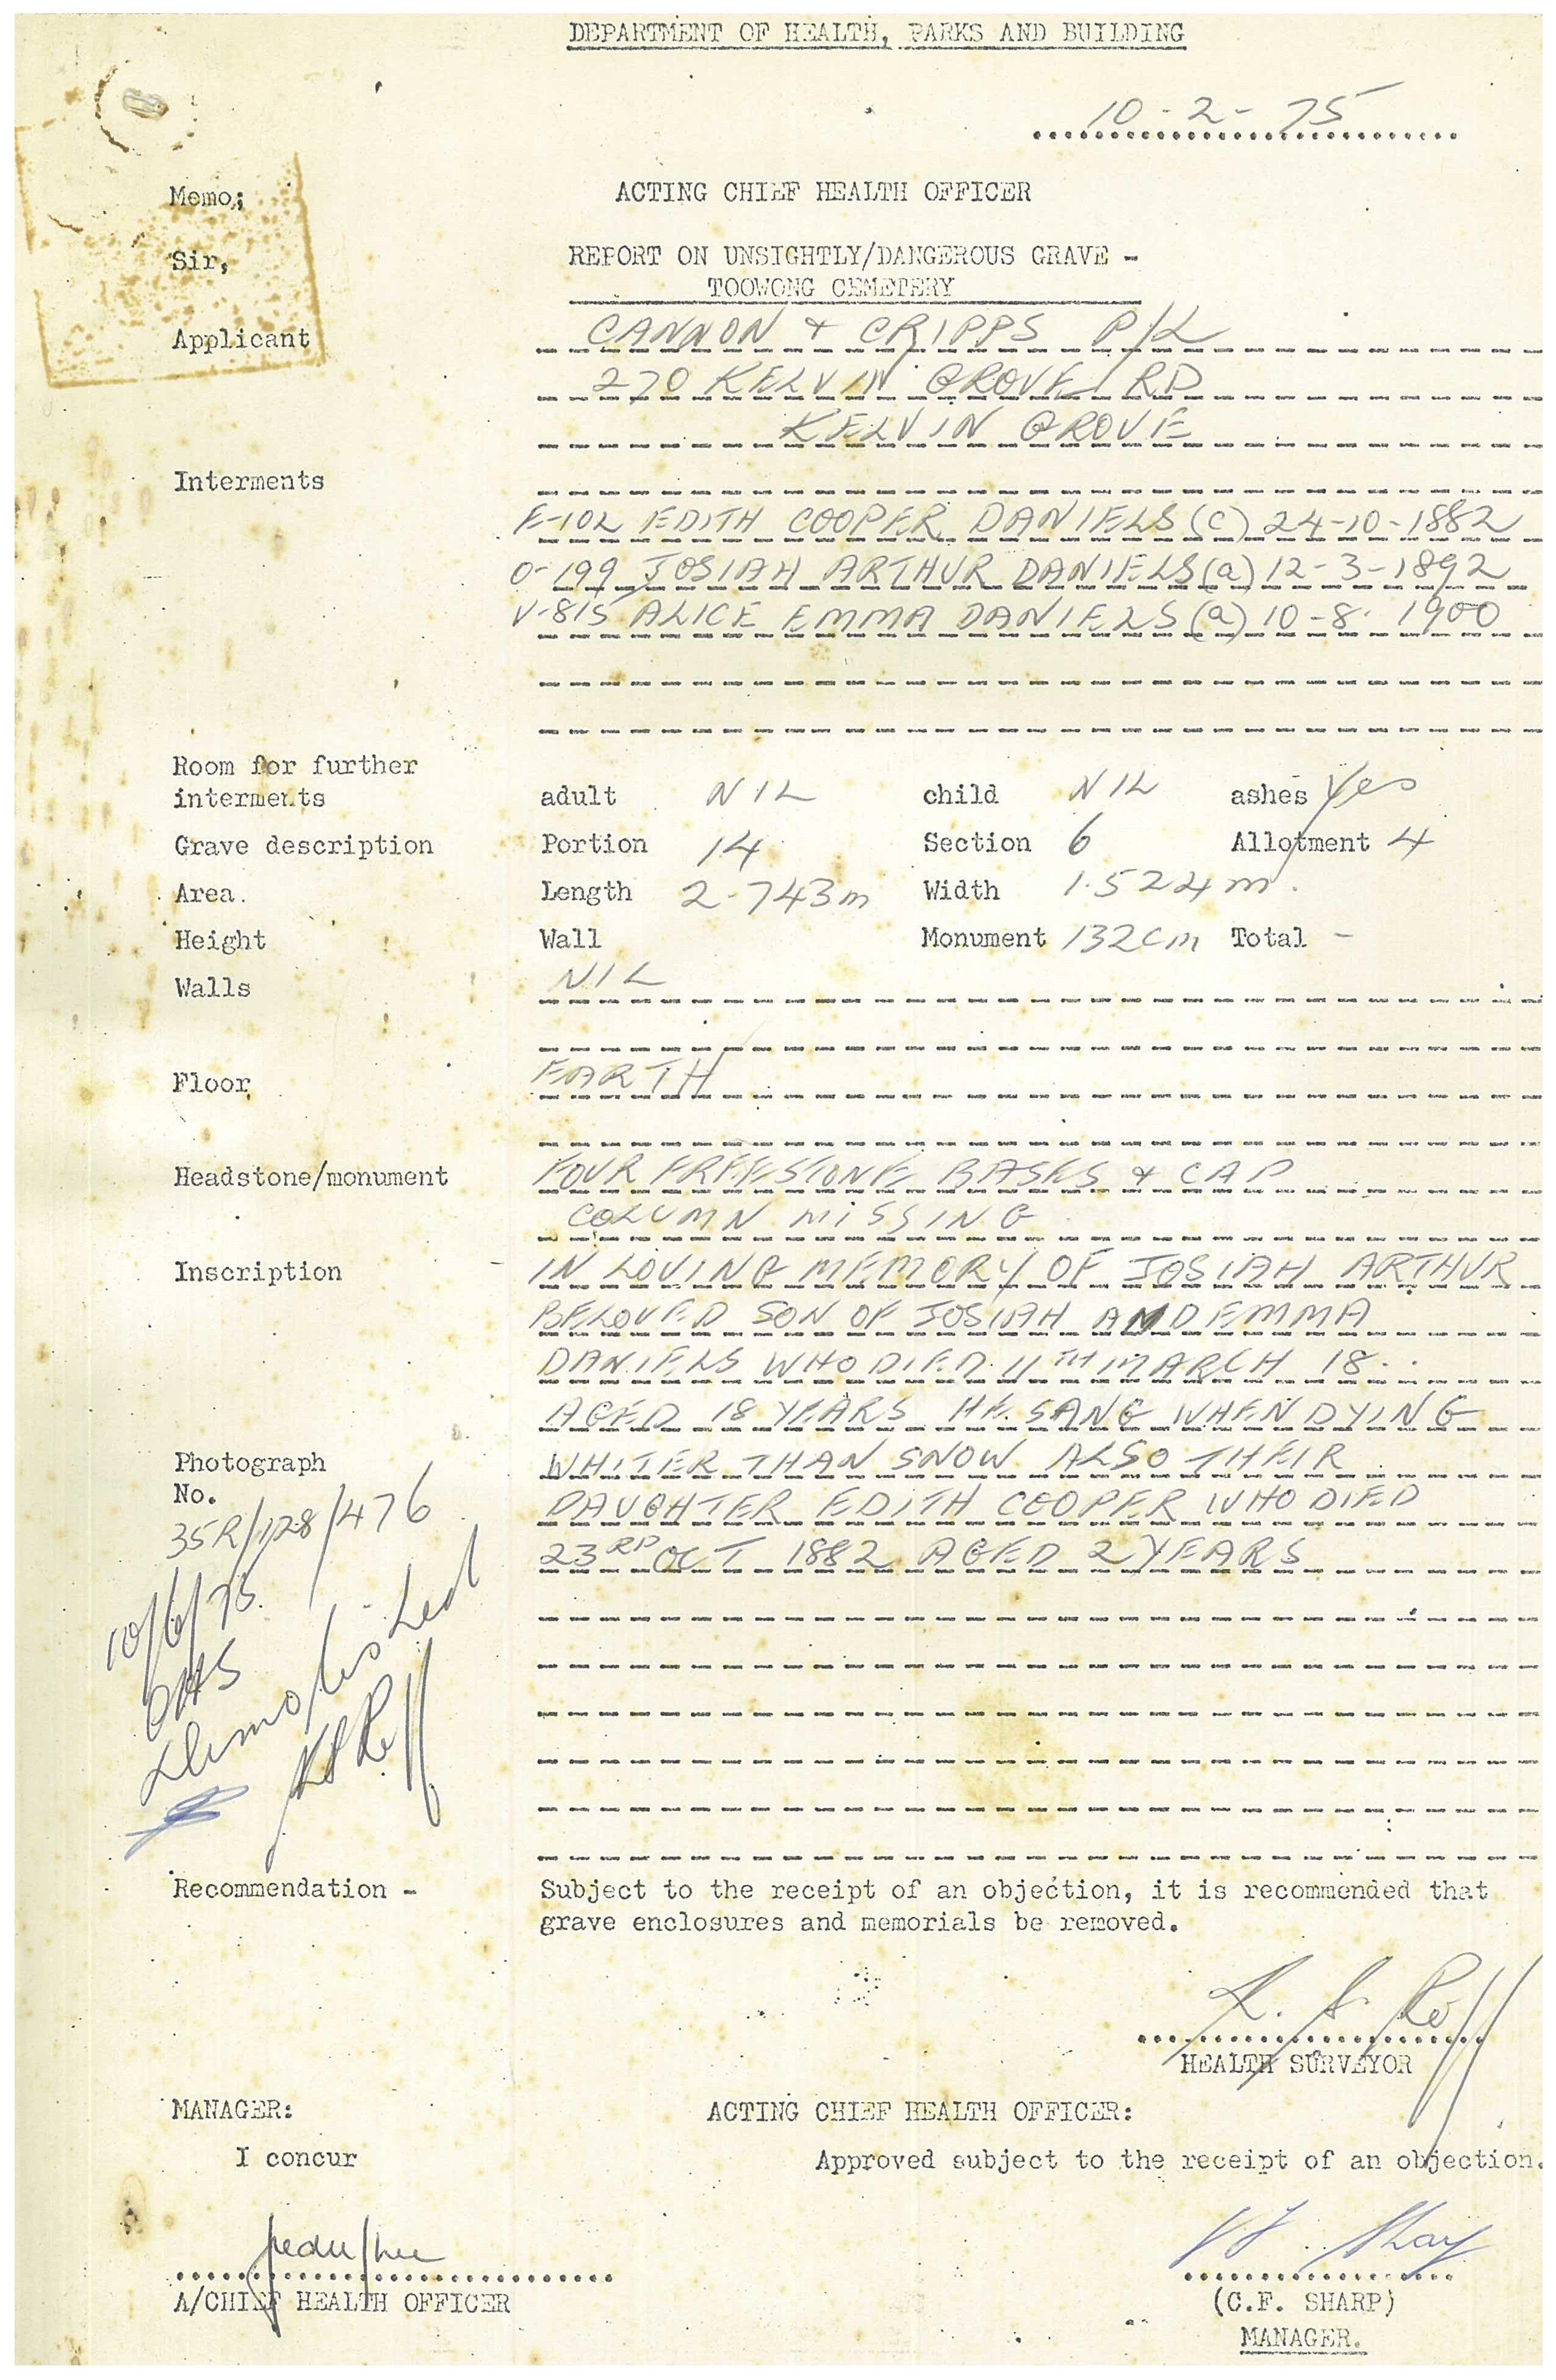 DEPARTMENT OF HEALTH, PARKS AND BUILDING
10-2-75
Memo; ACTING CHIEF HEALTH OFFICER
Sir, REPORT ON UNSIGHTLY/DANGEROUS GRAVE -
TOOWONG CEMETERY
Applicant CANNON & CRIPPS P/L
270 KELVIN GROVE RD
KELVIN GROVE
Interments
E-102 EDITH COOPER DANIELS (C) 24-10-1882
O-199 JOSIAH ARTHUR DANIELS (a) 12-3-1892
V-815 ALICE EMMA DANIELS (a) 10-8-1900
Room for further
interments adult NIL child NIL ashes Yes
Grave description Portion 14 Section 6 Allotment 4
Area. Length 2.743m Width 1.524m.
Height Wall Monument 132cm Total -
Walls NIL
Floor EARTH
Headstone/monument FOUR FREESTONE BASES & CAP
COLUMN MISSING
Inscription - IN LOVING MEMORY OF JOSIAH ARTHUR
BELOVED SON OF JOSIAH AND EMMA
DANIELS WHO DIED 11TH MARCH 18..
AGED 18 YEARS HE SANG WHEN DYING
Photograph WHITER THAN SNOW ALSO THEIR
No. DAUGHTER EDITH COOPER WHO DIED
35R/128/476 23RD OCT 1882 AGED 2 YEARS
10/6/75
Demolished
Recommendation - Subject to the receipt of an objection, it is recommended that
grave enclosures and memorials be removed.
HEALTH SURVEYOR
MANAGER: ACTING CHIEF HEALTH OFFICER:
I concur Approved subject to the receipt of an objection.
A/CHIEF HEALTH OFFICER (C.F. SHARP)
MANAGER.